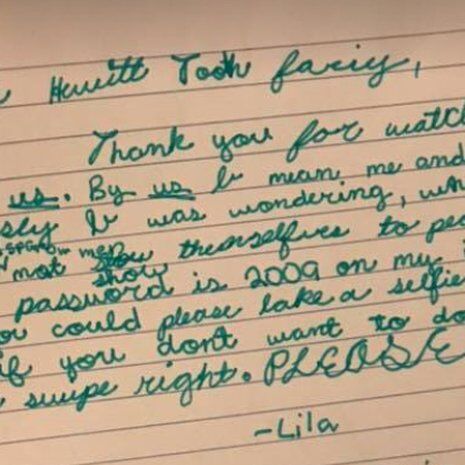 Hewitt Tooth fariy,
Thank you for watch
us. By us I mean me and
I was wondering, wh
most show themselfves to pe
password is 2009 on my
could please take a selfie
if you dont want to do
swipe right. PLEASE
-Lila